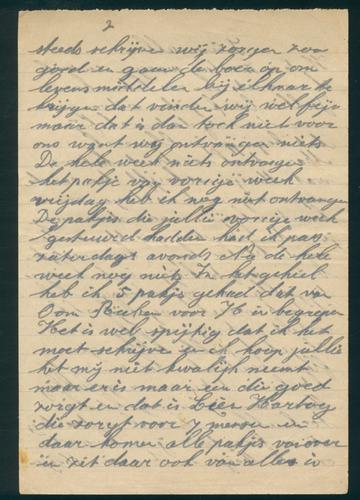 2
steeds schrijve wij zorgen zoo
goed en gaan de boer op om
levens middelen bij elkaar te
krijgen dat vinden wij wel fijn
maar dat is dan toch niet voor
ons want wij ontvangen niets
De hele week niets ontvangen
het pakje van vorige week
vrijdag heb ik nog niet ontvangen
De pakjes die jullie vorige week
gestuurd hadden had ik pas
zaterdags avonds Al de hele
week nog niets In het geheel
heb ik 5 pakjes gehad dat van
Oom voor H in begrepen
Het is wel spijtig dat ik het
moet schrijve en ik hoop jullie
het mij niet kwalijk neemt
maar er is maar een die goed
zorgt en dat is Hartog
die zorgt voor 7 mensen en
daar komen alle pakjes van over
en zit daar ook van alles in